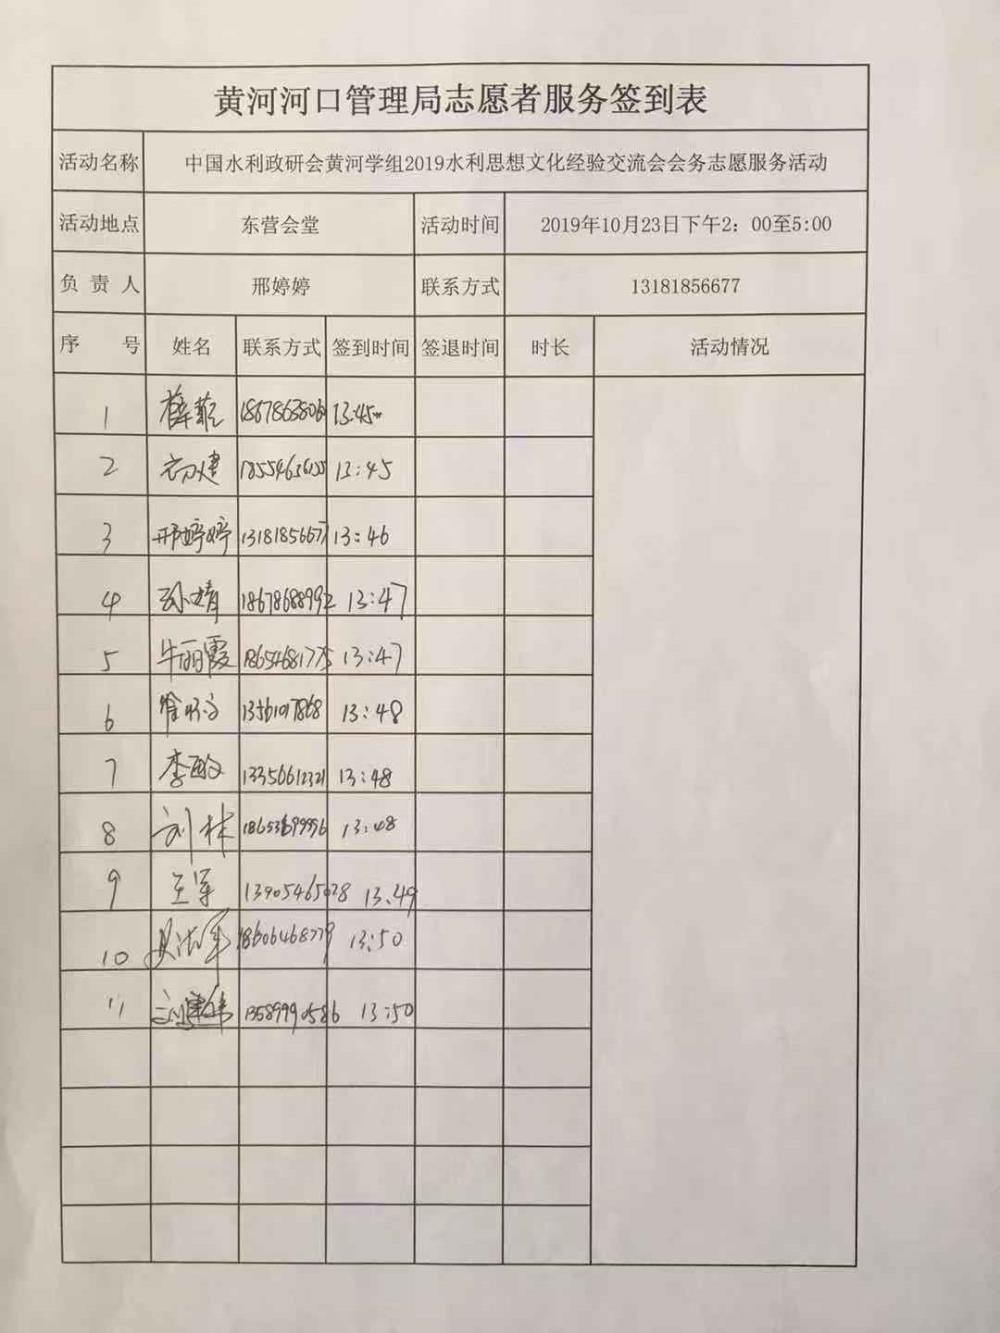 黄河河口管理局志愿者服务签到表
活动名称 中国水利政研会黄河学组2019水利思想文化经验交流会会务志愿服务活动
活动地点 东营会堂 活动时间 2019年10月23日下午2：00至5:00
负责人 邢婷婷 联系方式 13181856677
序号 姓名 联系方式 签到时间 签退时间 时长 活动情况
1 13:45
2 13:45
3 邢婷婷 13181856677 13:46
4 孙婧 18678688992 13:47
5 牛丽霞 18654681775 13:47
6 13:48
7 李敏 13356612321 13:48
8 刘林 13:48
9 王军 13:49
10 18606468779 13:50
11 13589990586 13:50